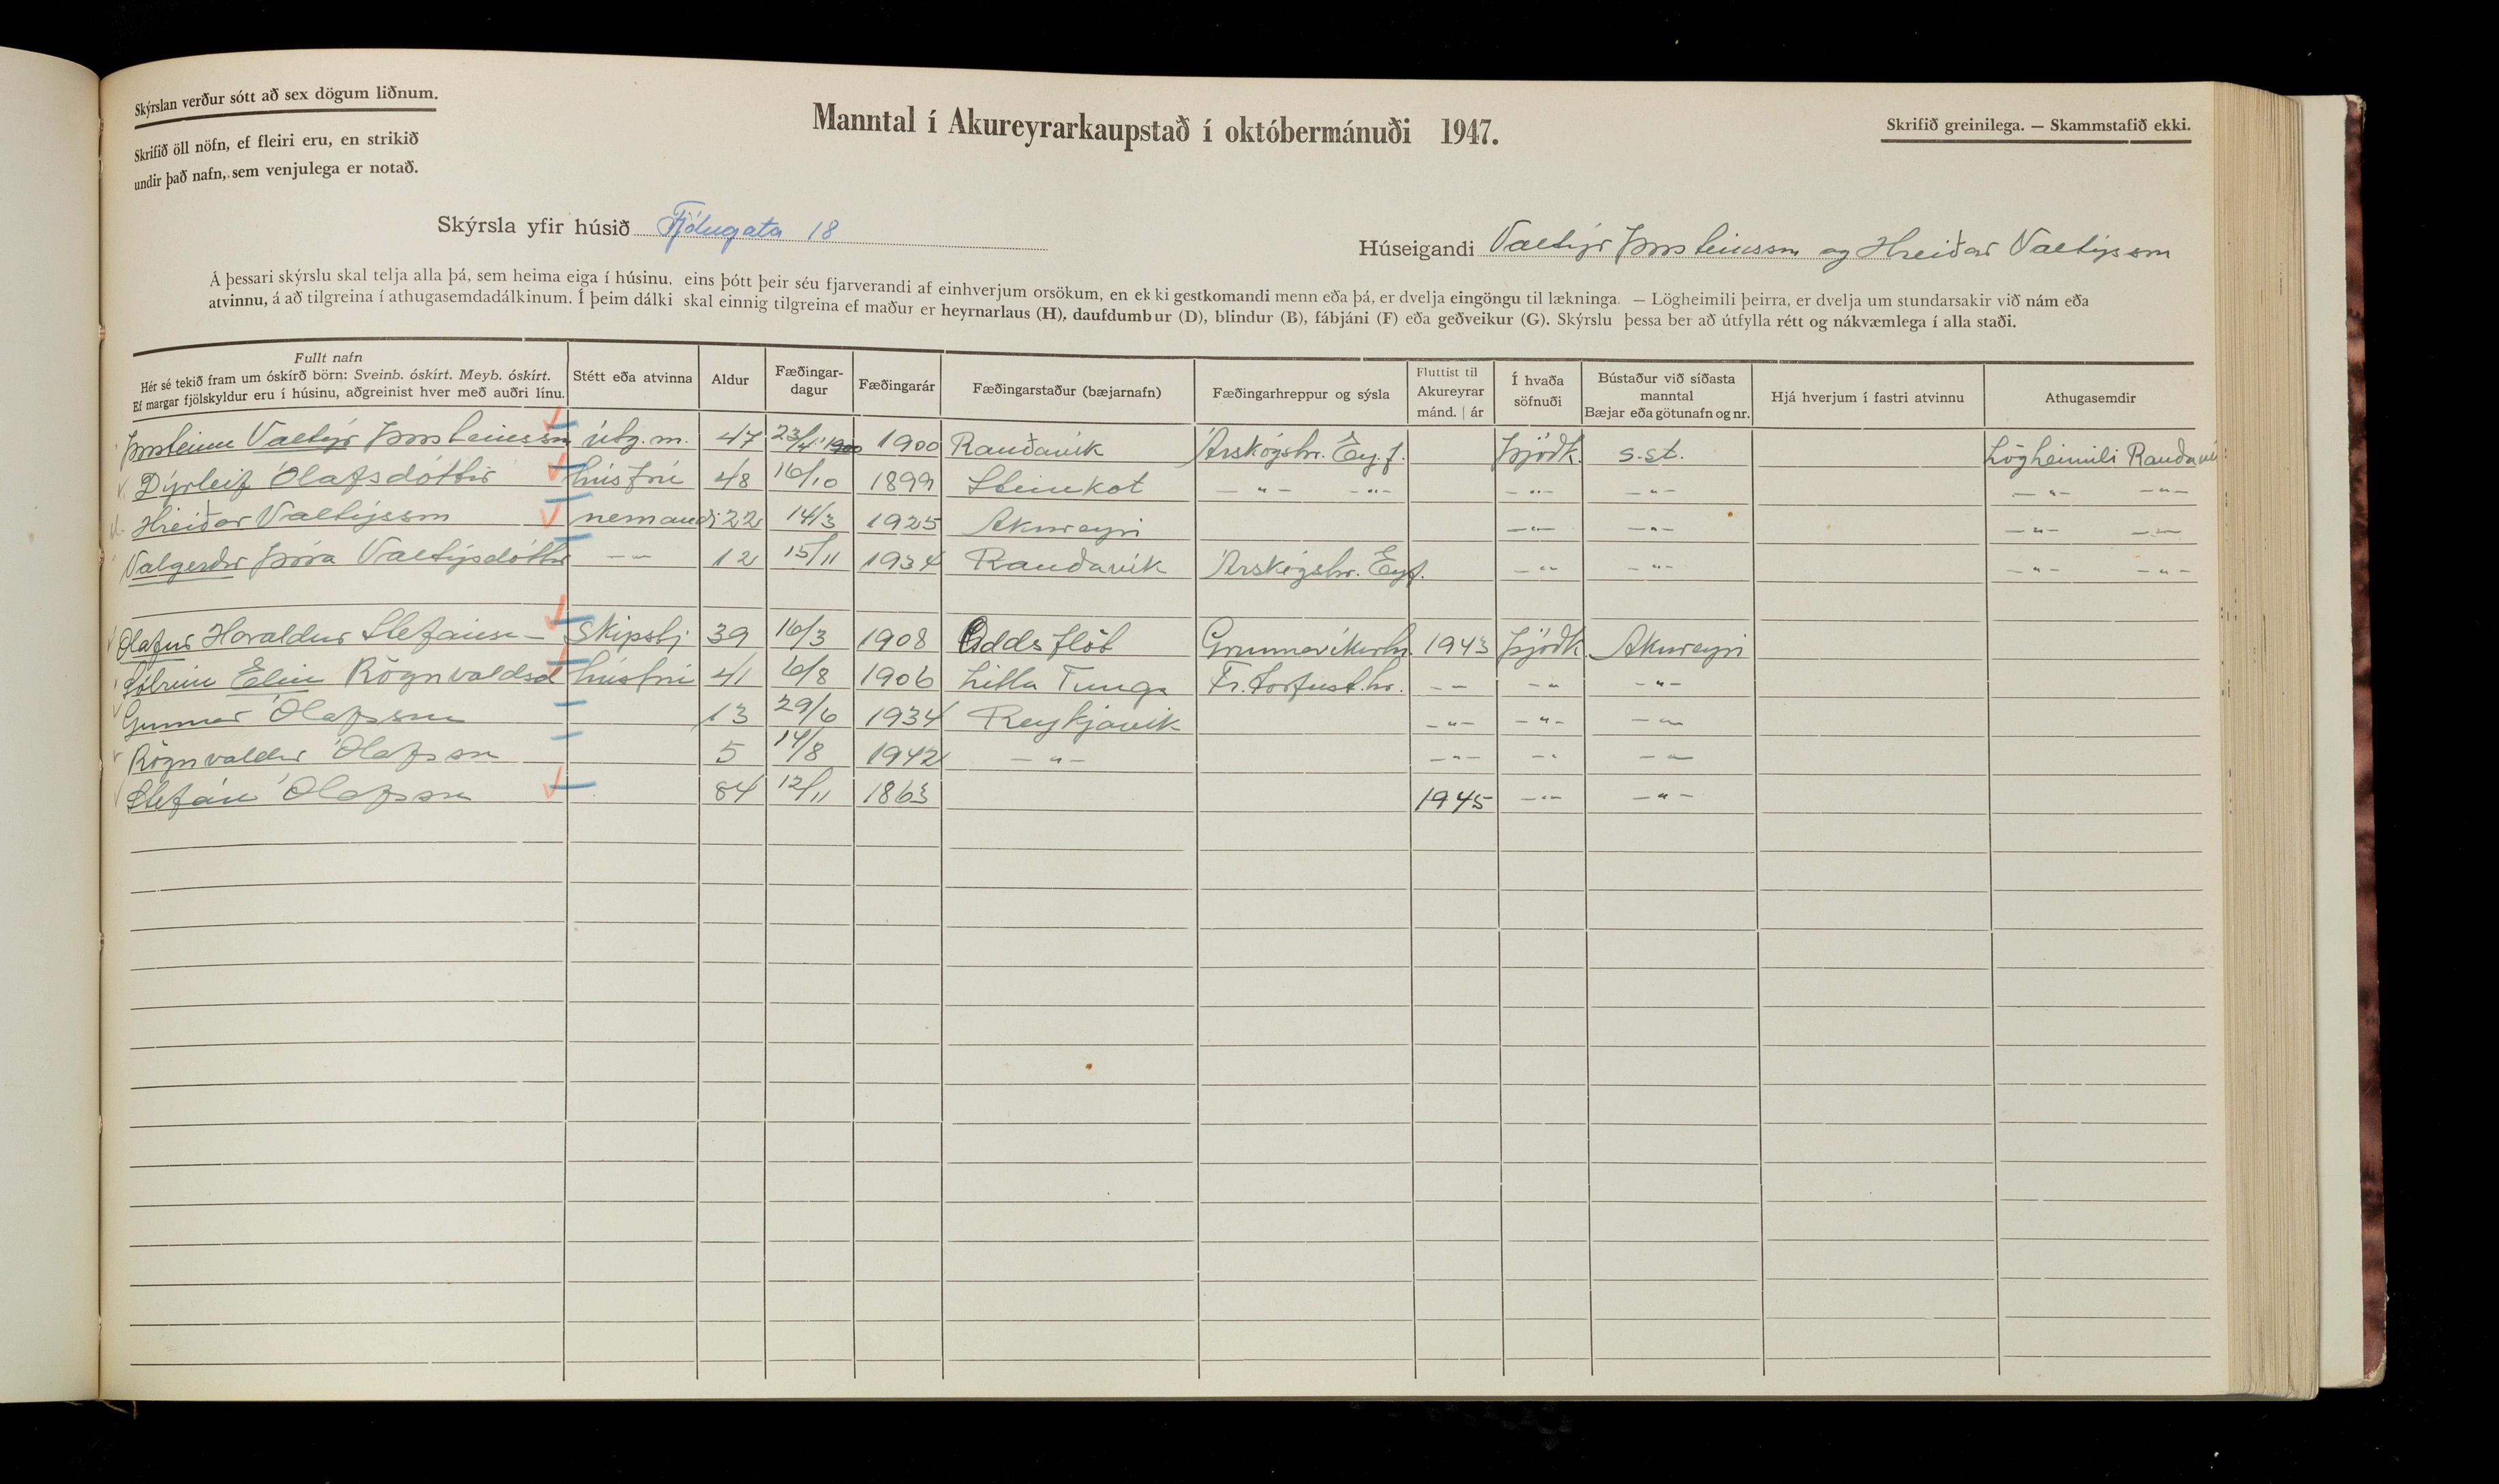 Skýrslan verður sótt að sex dögum liðnum.
Skrifið öll nöfn, ef fleiri eru, en strikið
undir það nafn, sem venjulega er notað.
Manntal í Akureyrarkaupstað í októbermánuði 1947.
Skrifið greinilega. — Skammstafið ekki.
Skýrsla yfir húsið Fjólugata 18
Húseigandi Valtýr Þorsteinsson og Hreiðar Valtýsson
Á þessari skýrslu skal telja alla þá, sem heima eiga í húsinu, eins þótt þeir séu fjarverandi af einhverjum orsökum, en ekki gestkomandi menn eða þá, er dvelja eingöngu til lækninga. — Lögheimili þeirra, er dvelja um stundarsakir við nám eða
atvinnu, á að tilgreina í athugasemdadálkinum. Í þeim dálki skal einnig tilgreina ef maður er heyrnarlaus (H), daufdumbur (D), blindur (B), fábjáni (F) eða geðveikur (G). Skýrslu þessa ber að útfylla rétt og nákvæmlega í alla staði.
Fullt nafn
Hér sé tekið fram um óskírð börn: Sveinb. óskírt. Meyb. óskírt.
Ef margar fjölskyldur eru í húsinu, aðgreinist hver með auðri línu.
Stétt eða atvinna
Aldur
Fæðingar-
dagur
Fæðingarár
Fæðingarstaður (bæjarnafn)
Fæðingarhreppur og sýsla
Fluttist til
Akureyrar
mánd. | ár
Í hvaða
söfnuði
Bústaður við síðasta
manntal
Bæjar eða götunafn og nr.
Hjá hverjum í fastri atvinnu
Athugasemdir
Þorsteinn Valtýr Þorsteinsson útg.m. 47 23/4 1900 1900 Rauðavík Árskógshr. Eyf. Þjóðk. s.st. Lögheimili Rauðavík
Dýrleif Ólafsdóttir húsfrú 48 16/10 1899 Steinkot — " — — " — — " — — " — — " — — " —
Hreiðar Valtýsson nemandi 22 14/3 1925 Akureyri — " — — " — — " — — " —
Valgerður Þóra Valtýsdóttir — — 12 15/11 1934 Rauðavík Árskógshr. Eyf. — " — — " — — " — — " —
Ólafur Haraldur Stefánss — Skipstj 39 16/3 1908 Oddsflöt Grunnavíkurhr. 1943 Þjóðk. Akureyri
Sólrún Elín Rögnvaldsd húsfrú 41 6/8 1906 Litla Tunga Fr. Torfust.hr. — — — " — " —
Gunnar Ólafsson 13 29/6 1934 Reykjavík — " — — " — — " —
Rögnvaldur Ólafsson 5 14/8 1942 — " — — " — — " — — " —
Stefán Ólafsson 84 12/11 1863 1945 — " — — " —